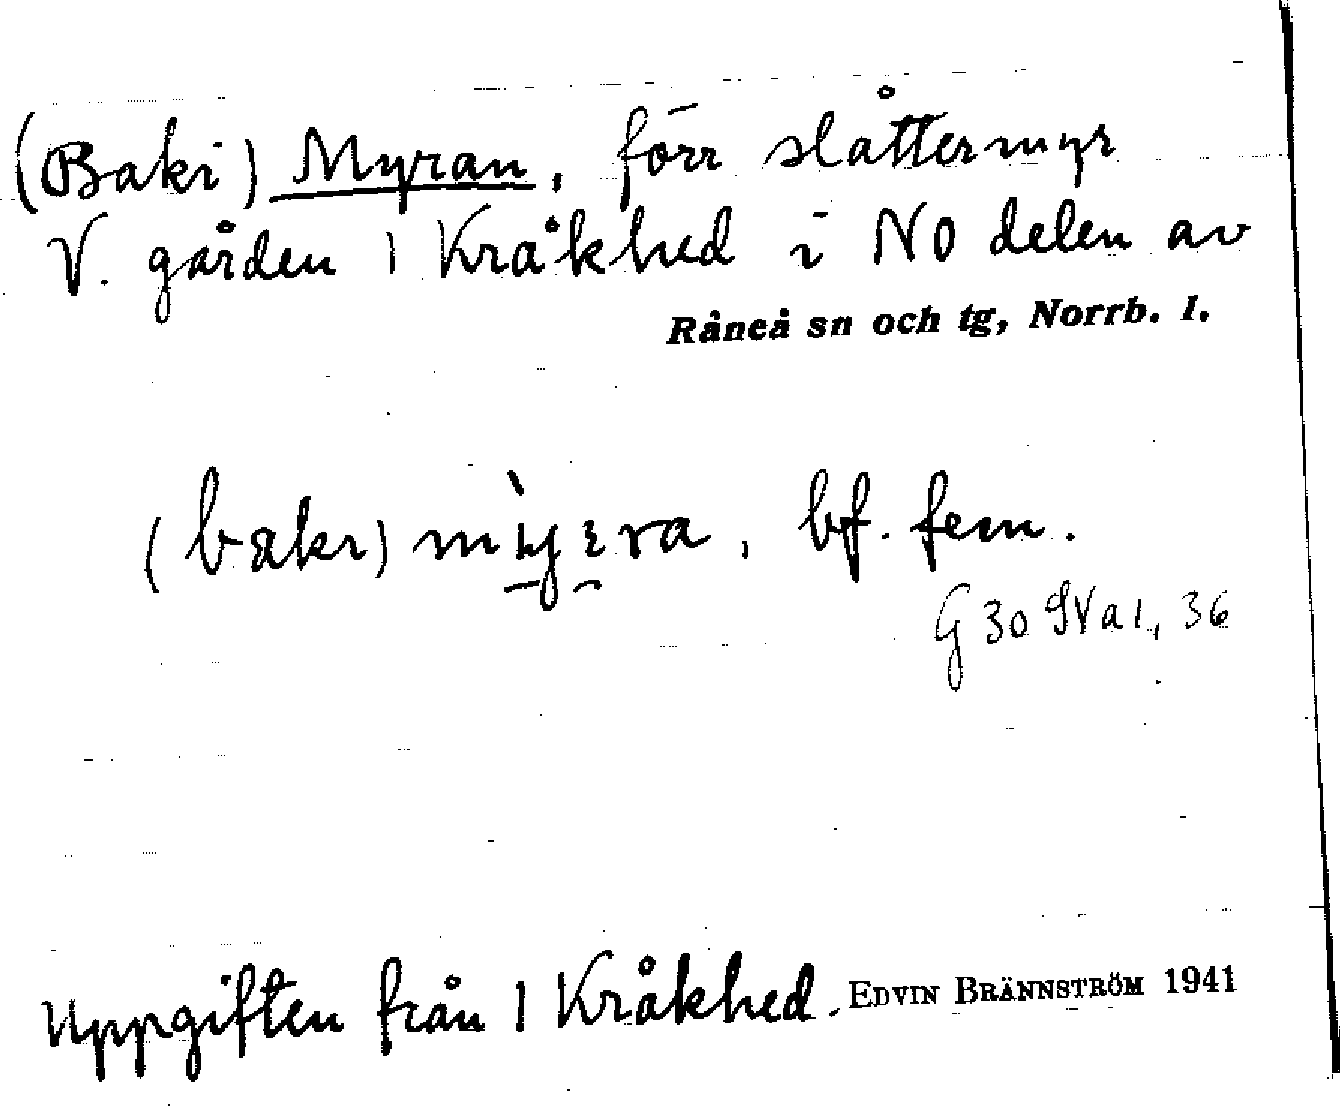 (Bakri) Myran, förr slåttermyr
V. gården 1 Kråkhed i NO delen av
Råneå sn och tg, Norrb. l.
bf. fem.
G 30
36
Uppgiften från 1 Kråkhed. EDVIN BRÄNNSTRÖM 1941